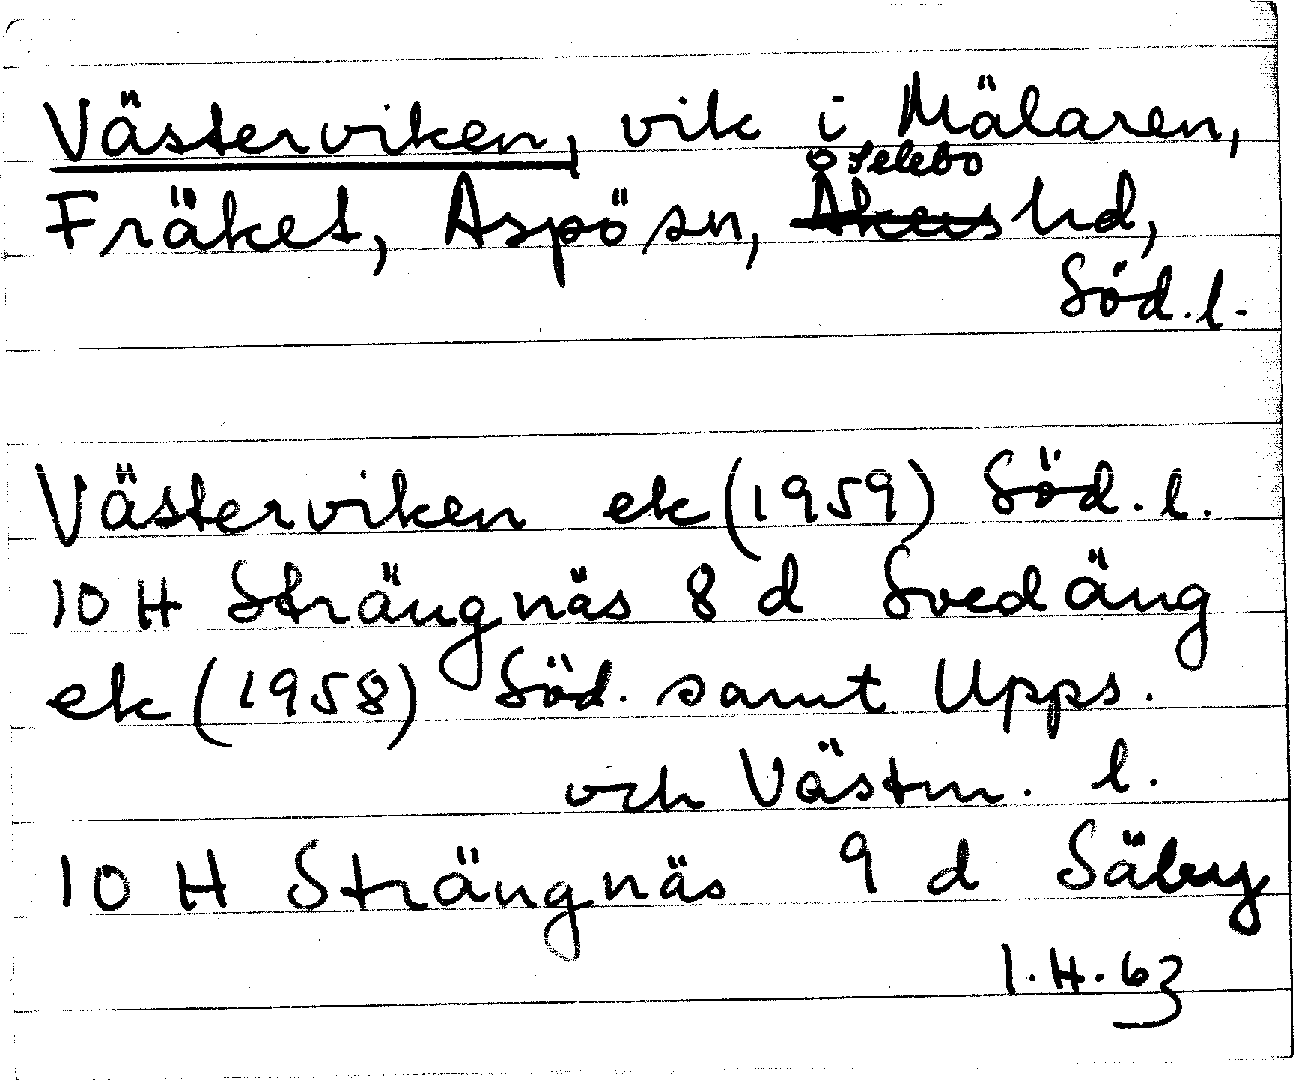 Västerviken, vik i Mälaren,
Selebo
Fräket, Aspö sn, Åkers hd,
Söd. l.
Västerviken ek (1959) Söd. l.
10 H Strängnäs 8 d Svedäng
ek (1958) Söd. samt Upps.
och Västm. l.
10 H Strängnäs 9 d Säby
I. H. 63